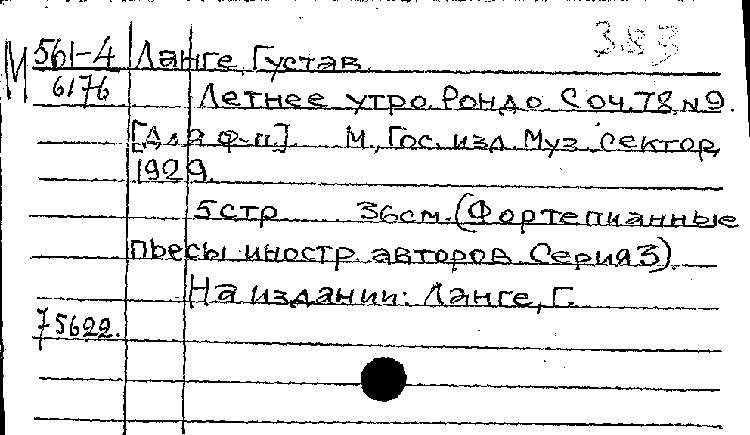 383
М 561-4 Ланге, Густав.
6176 Летнее утро. Рондо Соч.78, №9.
[Для ф-п.] М., Гос. изд. Муз. сектор,
1929.
5 стр 36 см. (Фортепианные
пьесы иностр. авторов. Серия 3).
На издании: Ланге, Г.
75622.